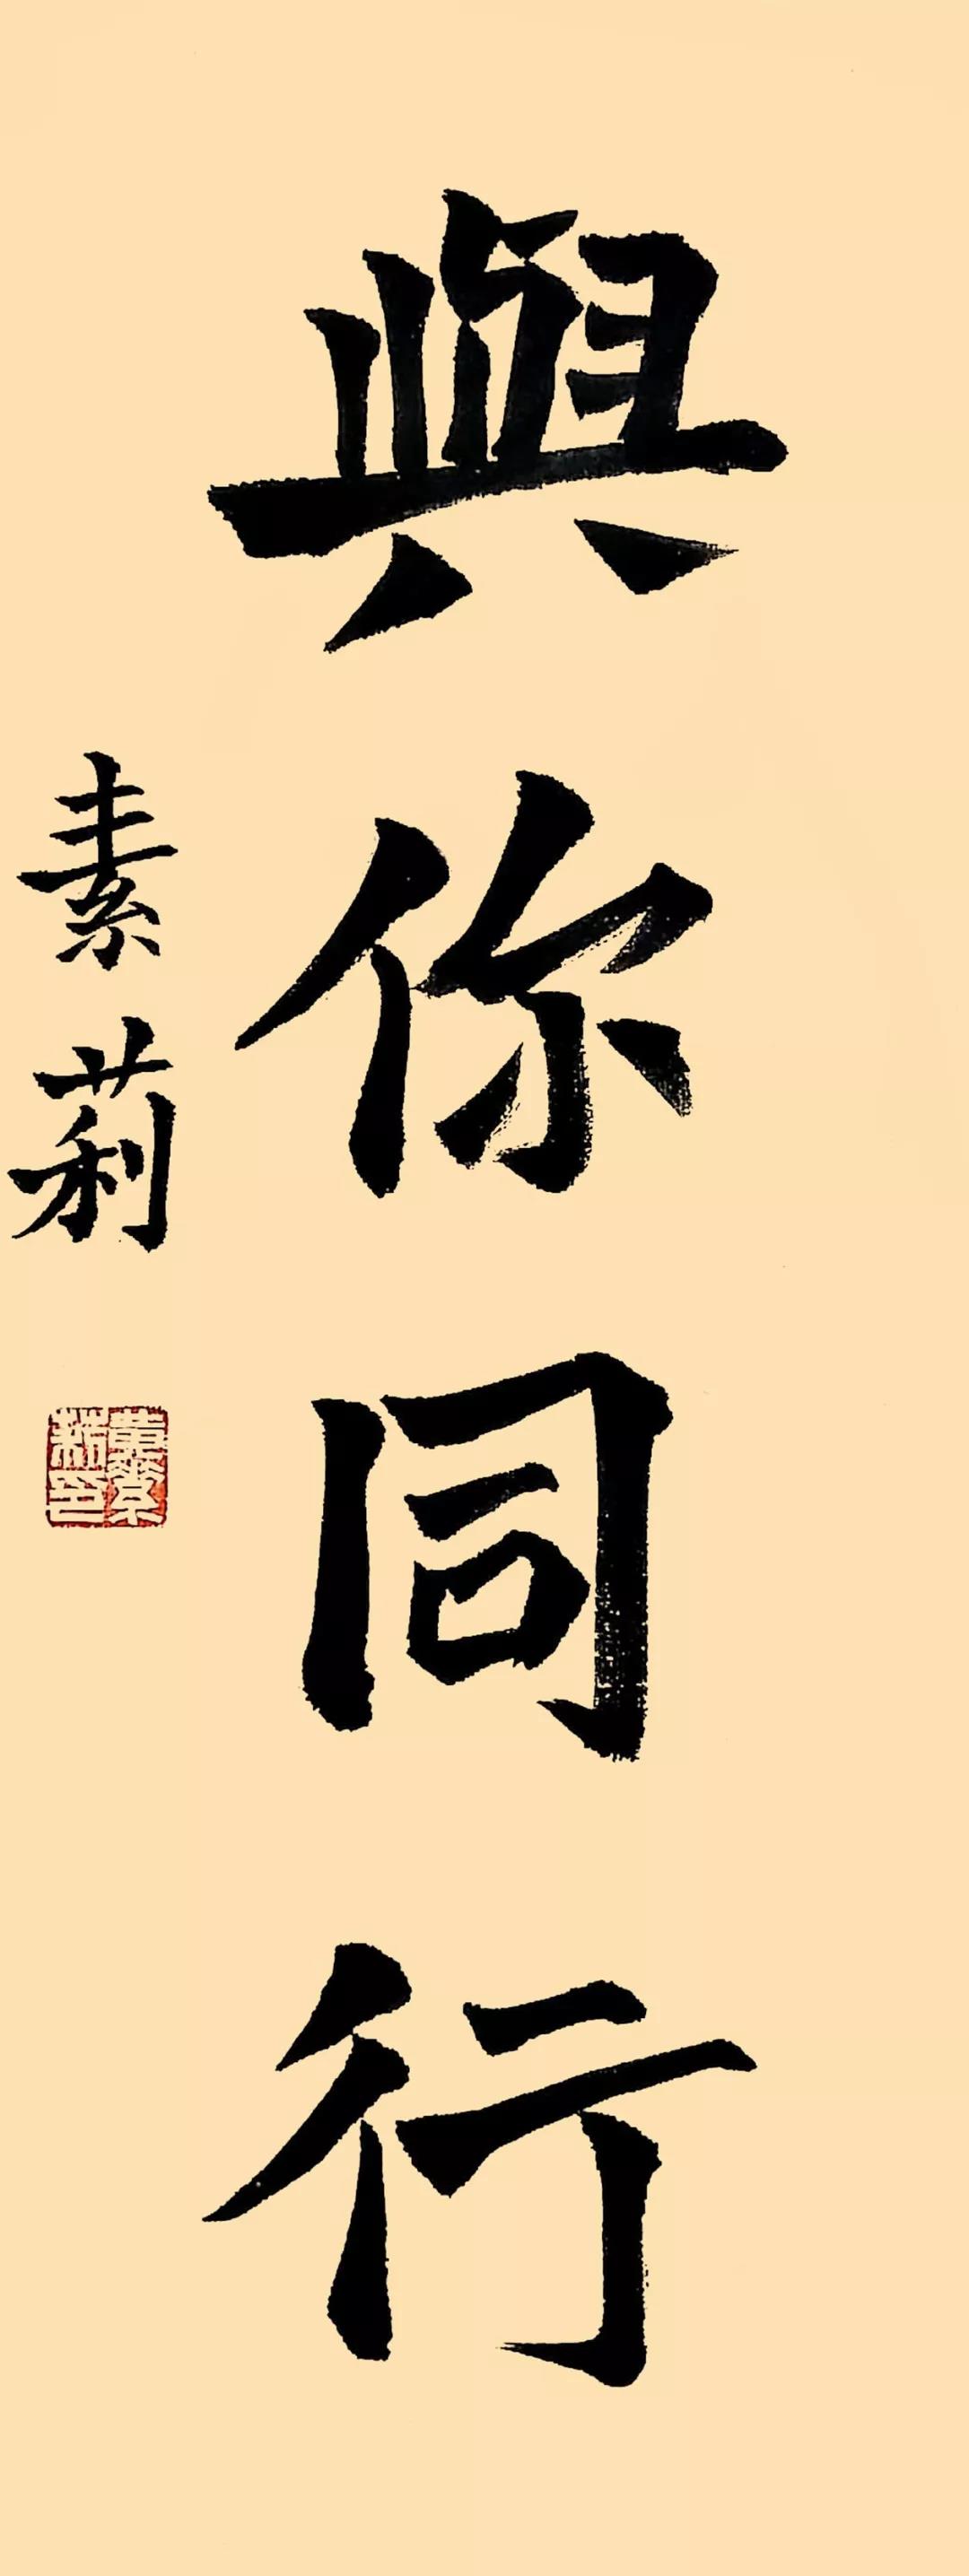 與你同行
素莉